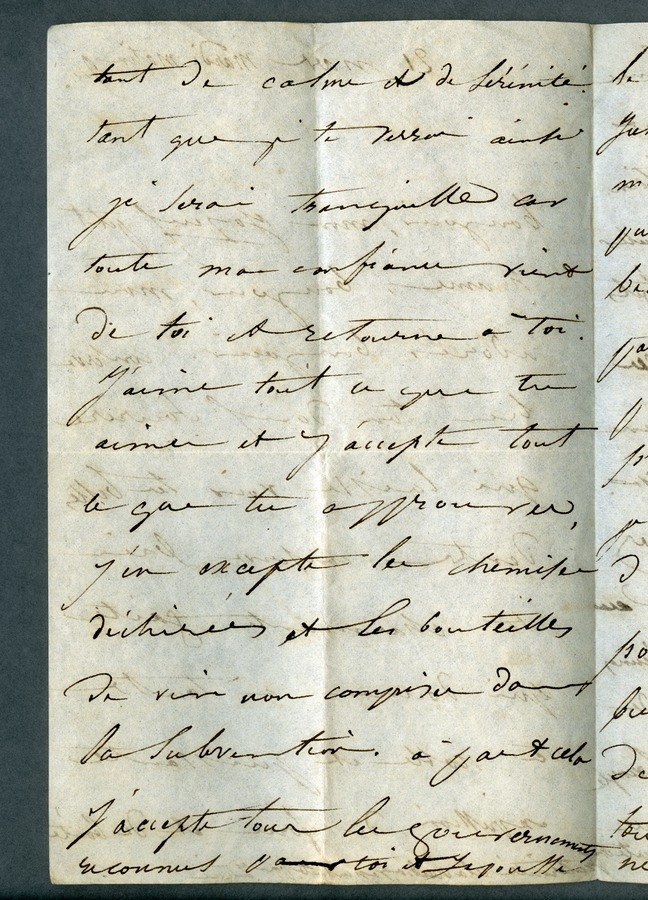 tant de calme et de sérénité.
tant que je te verrai ainsi
je serai tranquille car
toute ma confiance vient
de toi et retourne à toi.
J'aime tout ce que tu
aimes et j'accepte tout
ce que tu approuves,
j'en excepte les chemises
déchirées et les bouteilles
de vin non comprises dans
la subvention. à part cela
J'accepte tous les gouvernements
reconnus par toi et je pousse